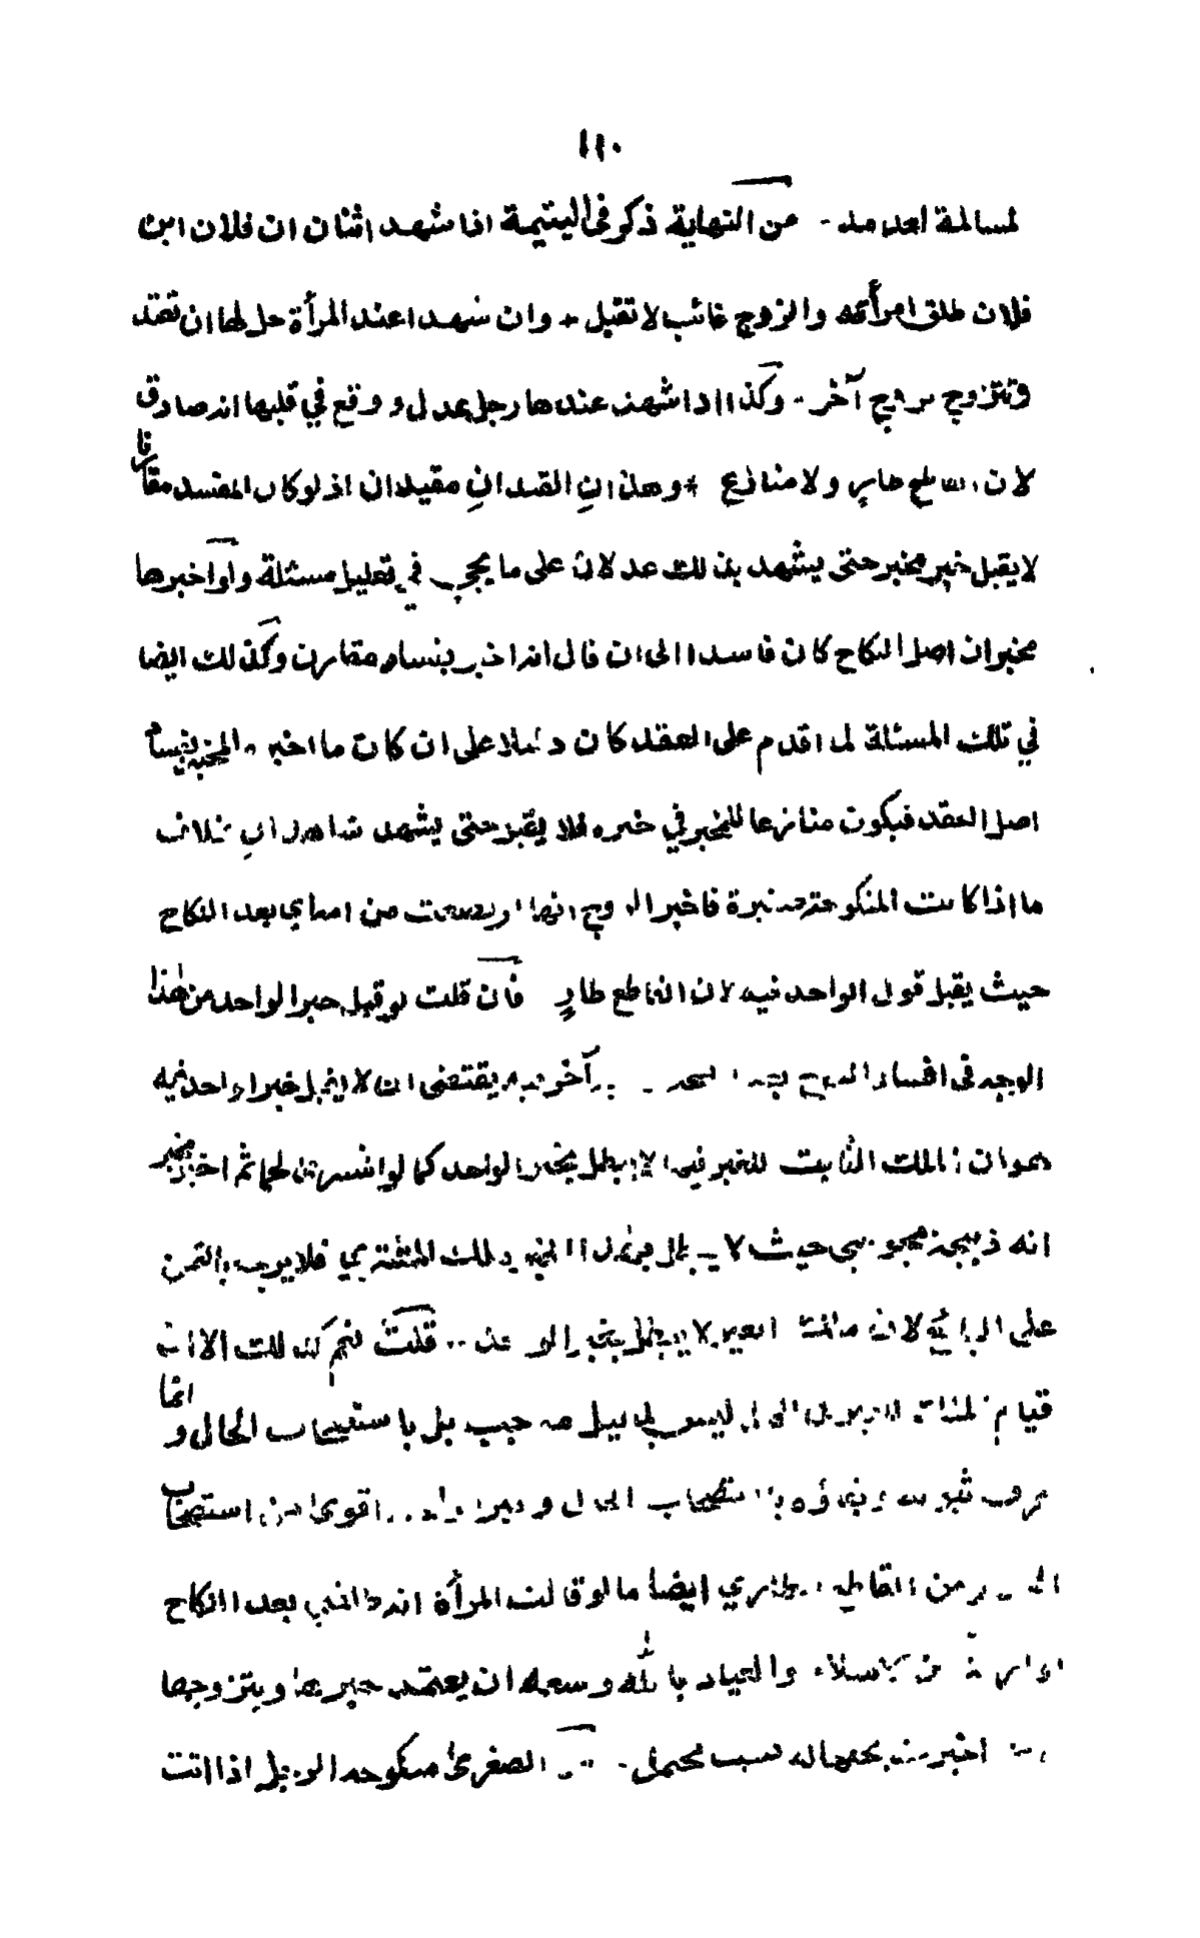 ١١٠
عن النهاية ذكر فى اليتيمة اذا شهد اثنان ان فلان ابن
فلان طلق امرأته والزوج غائب لا تقبل وان شهدا عند المرأة حل لها ان تعتد
وتتزوج بزوج آخر وكذا اذا شهد عندها رجل عدل ووقع في قلبها انه صادق
لان القاطع طار ولا منازع وهذان القيدان مقيدان اذ لو كان المفسد مقارنا
لا يقبل خبر مخبر حتى يشهد بذلك عدلان على ما يجئ في تعليل مسئلة ولو اخبرها
مخبر ان اصل النكاح كان فاسدا الى ان قال انه اخبر بفساد مقارن وكذلك ايضا
في تلك المسئلة لما اقدم على العقد كان دليلا على ان كان ما اخبر المخبر بفساد
اصل العقد فيكون منازعا للمخبر في خبره فلا يقبل حتى يشهد شاهدان بخلاف
ما اذا كانت المنكوحة صغيرة فاخبر الزوج انها ارتضعت من امه بعد النكاح
حيث يقبل قول الواحد فيه لان القاطع طار فان قلت لو قبل خبر الواحد من هذا
الوجه فى افساد النكاح بعد الصحة آخر فيه يقتضى ان لا يقبل خبر الواحد فيه
هو ان الملك الثابت للغير فيه لا يبطل بخبر الواحد كما لو اشترى لحما ثم اخبره مخبر
انه ذبيحة مجوسي حيث لا يبطل ملك المشتري فلا يرجع بالثمن
على البائع لان ملك الغير لا يبطل بخبر الواحد قلت نعم كذلك الا ان
قيام الملك ليس بدليل موجب بل باستصحاب الحال وانما
عرف ثبوته وبقاؤه باستصحاب الحال وخبر الواحد اقوى من استصحاب
الحال ومن القاطع الطاري ايضا ما لو قالت المرأة انه طلقني بعد النكاح
او ارتد عن الاسلام والعياذ بالله وسعه ان يعتمد خبرها ويتزوجها
اخبرت بحرمة لسبب محتمل الصغرى منكوحة الرجل اذا اتت